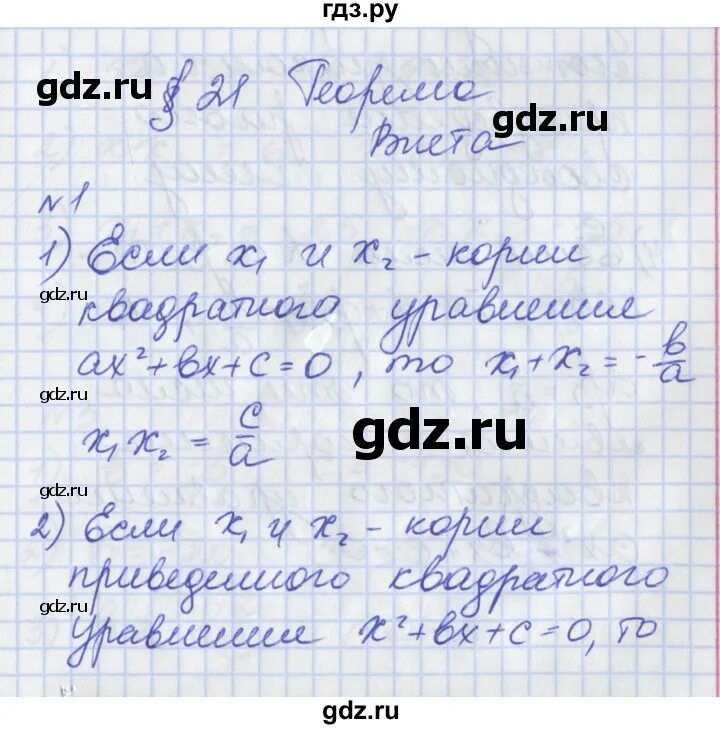 гдз.ру
gdz.ru
§ 21 Теорема
gdz.ru
Виета
№ 1
1) Если x₁ и x₂ - корни
gdz.ru
квадратного уравнения
ax² + bx + c = 0, то x₁ + x₂ = - b/a
gdz.ru
x₁ x₂ = c/a
gdz.ru
2) Если x₁ и x₂ - корни
приведенного квадратного
gdz.ru
уравнения x² + bx + c = 0, то
gdz.ru